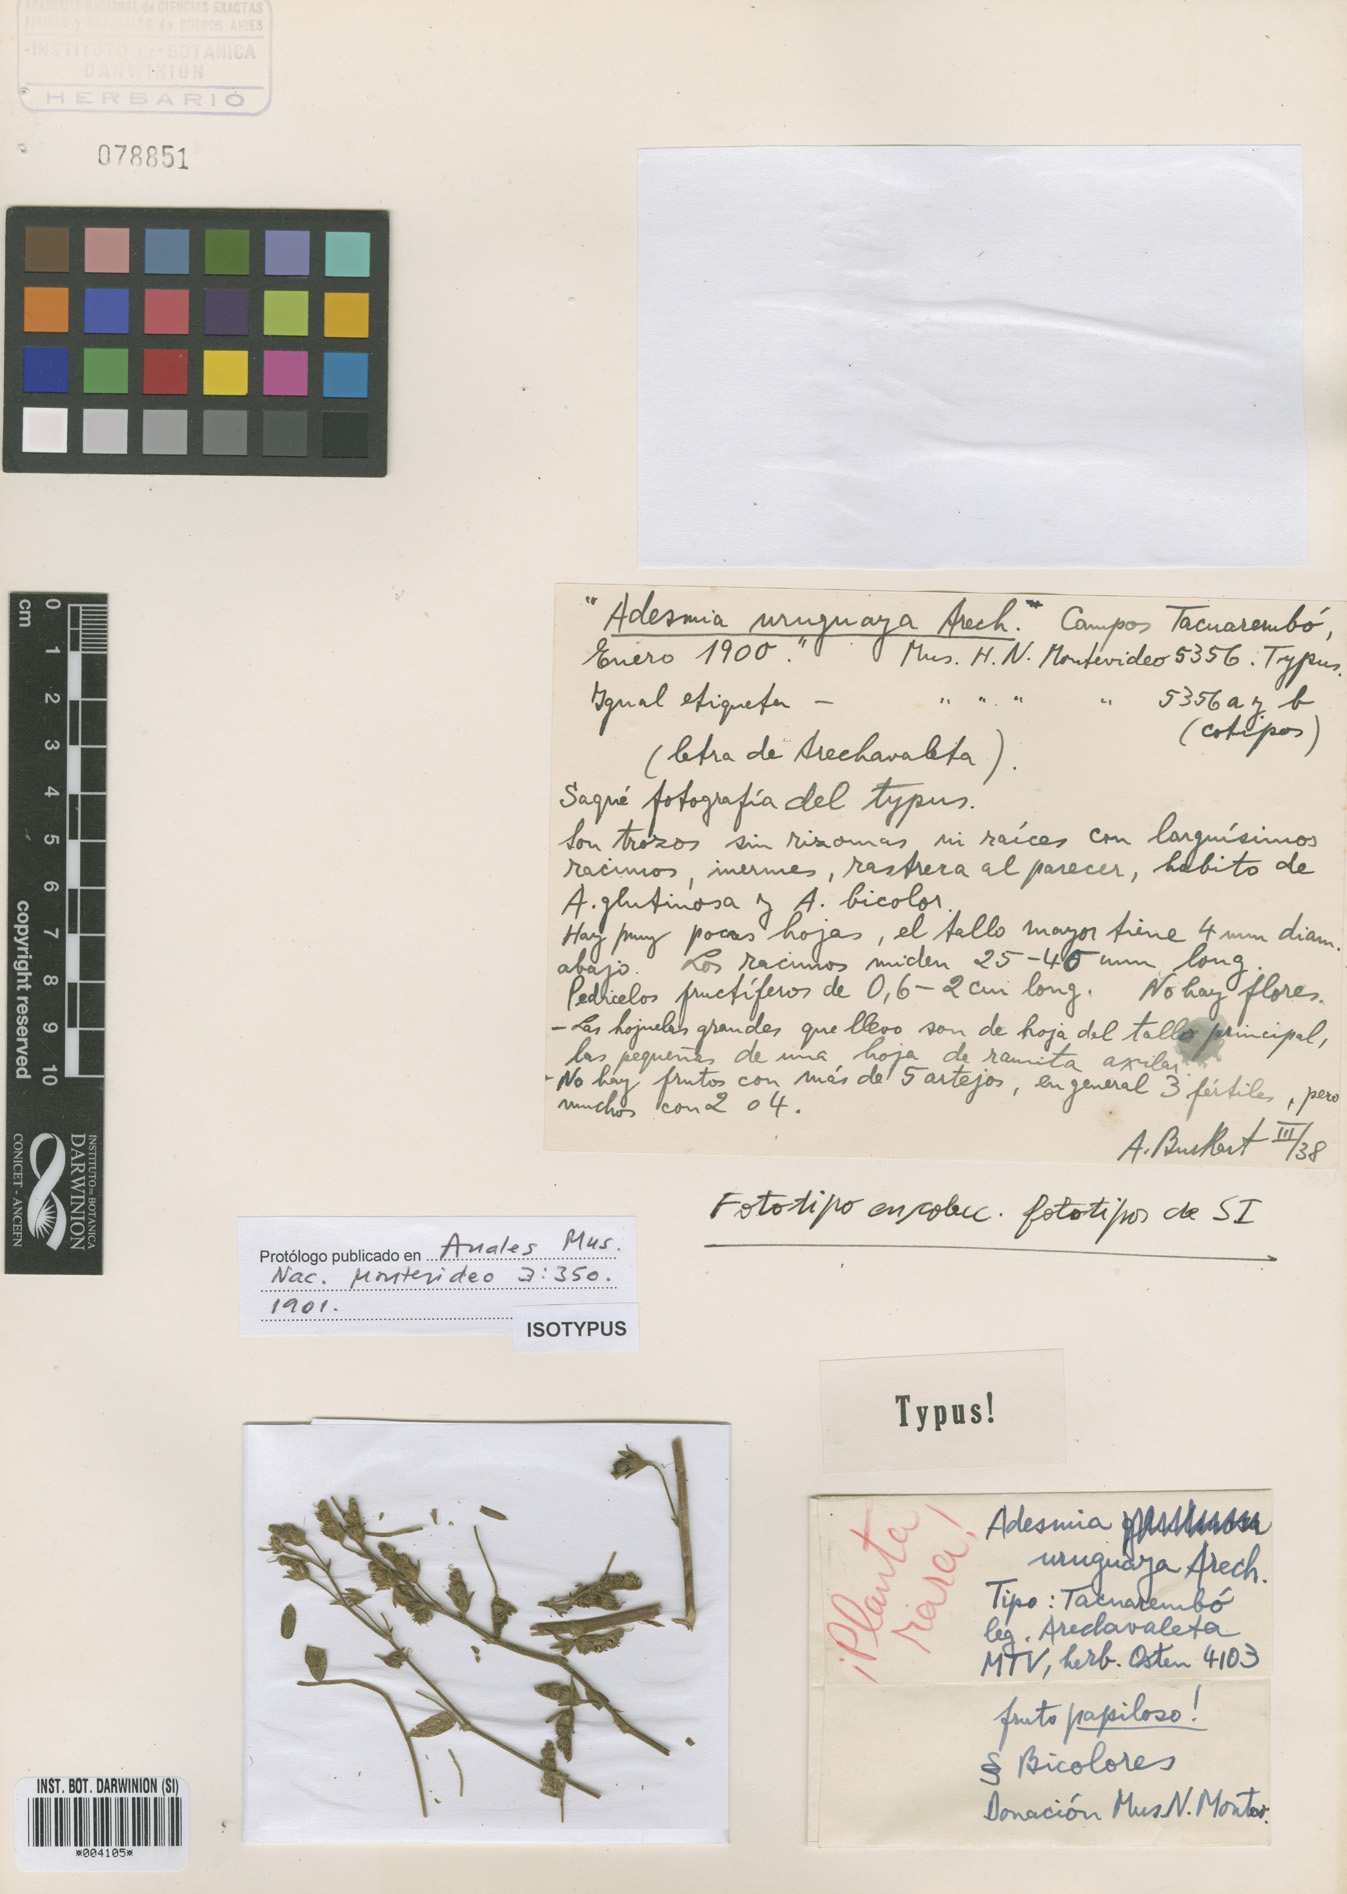 ACADEMIA NACIONAL de CIENCIAS EXACTAS
FISICAS y NATURALES de BUENOS AIRES
INSTITUTO de BOTANICA
DARWINION
HERBARIO
078851
"Adesmia uruguaya Arech." Campos Tacuarembó,
Enero 1900." Mus. H. N. Montevideo 5356. Typus.
Igual etiqueta — " " " " 5356 a y b
(cotipos)
(letra de Arechavaleta).
Saqué fotografía del typus.
Son trozos sin rizomas ni raíces con larguísimos
racimos, inermes, rastrera al parecer, habito de
A. glutinosa y A. bicolor.
Hay muy pocas hojas, el tallo mayor tiene 4 mm diam.
abajo. Los racimos miden 25-40 mm long.
Pedicelos fructíferos de 0,6-2 cm long. No hay flores.
- Las hojuelas grandes que llevo son de hoja del tallo principal,
las pequeñas de una hoja de ramita axilar.
- No hay frutos con más de 5 artejos, en general 3 fértiles, pero
muchos con 2 o 4.
A. Burkart III/38
Fototipo en colecc. fototipos de SI
Protólogo publicado en Anales Mus.
Nac. Montevideo 3:350.
1901.
ISOTYPUS
Typus!
¡Planta
rara!
Adesmia
uruguaya Arech.
Tipo: Tacuarembó
leg. Arechavaleta
MTV, herb. Osten 4103
fruto papiloso!
§ Bicolores
Donación Mus. N. Montev.
cm
0
1
2
3
4
5
6
7
8
9
10
copyright reserved
INSTITUTO DE BOTANICA
DARWINION
CONICET - ANCEFN
INST. BOT. DARWINION (SI)
*004105*